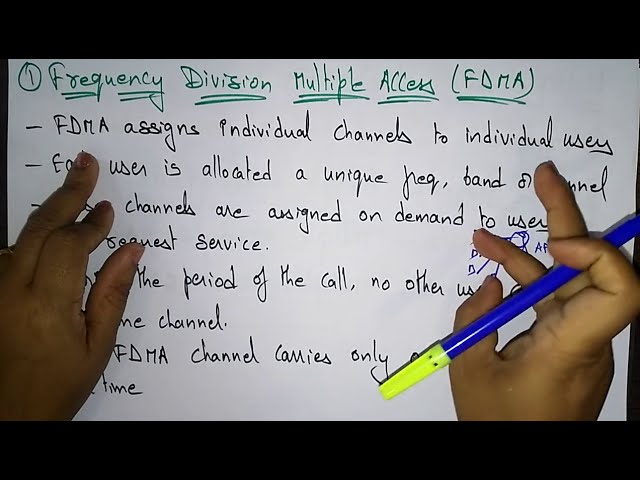 ① Frequency Division Multiple Access (FDMA)
- FDMA assigns individual channels to individual users
- user is allocated a unique freq, band or
channels are assigned on demand to
request service.
the period of the call, no other
channel.
FDMA channel carries only
time